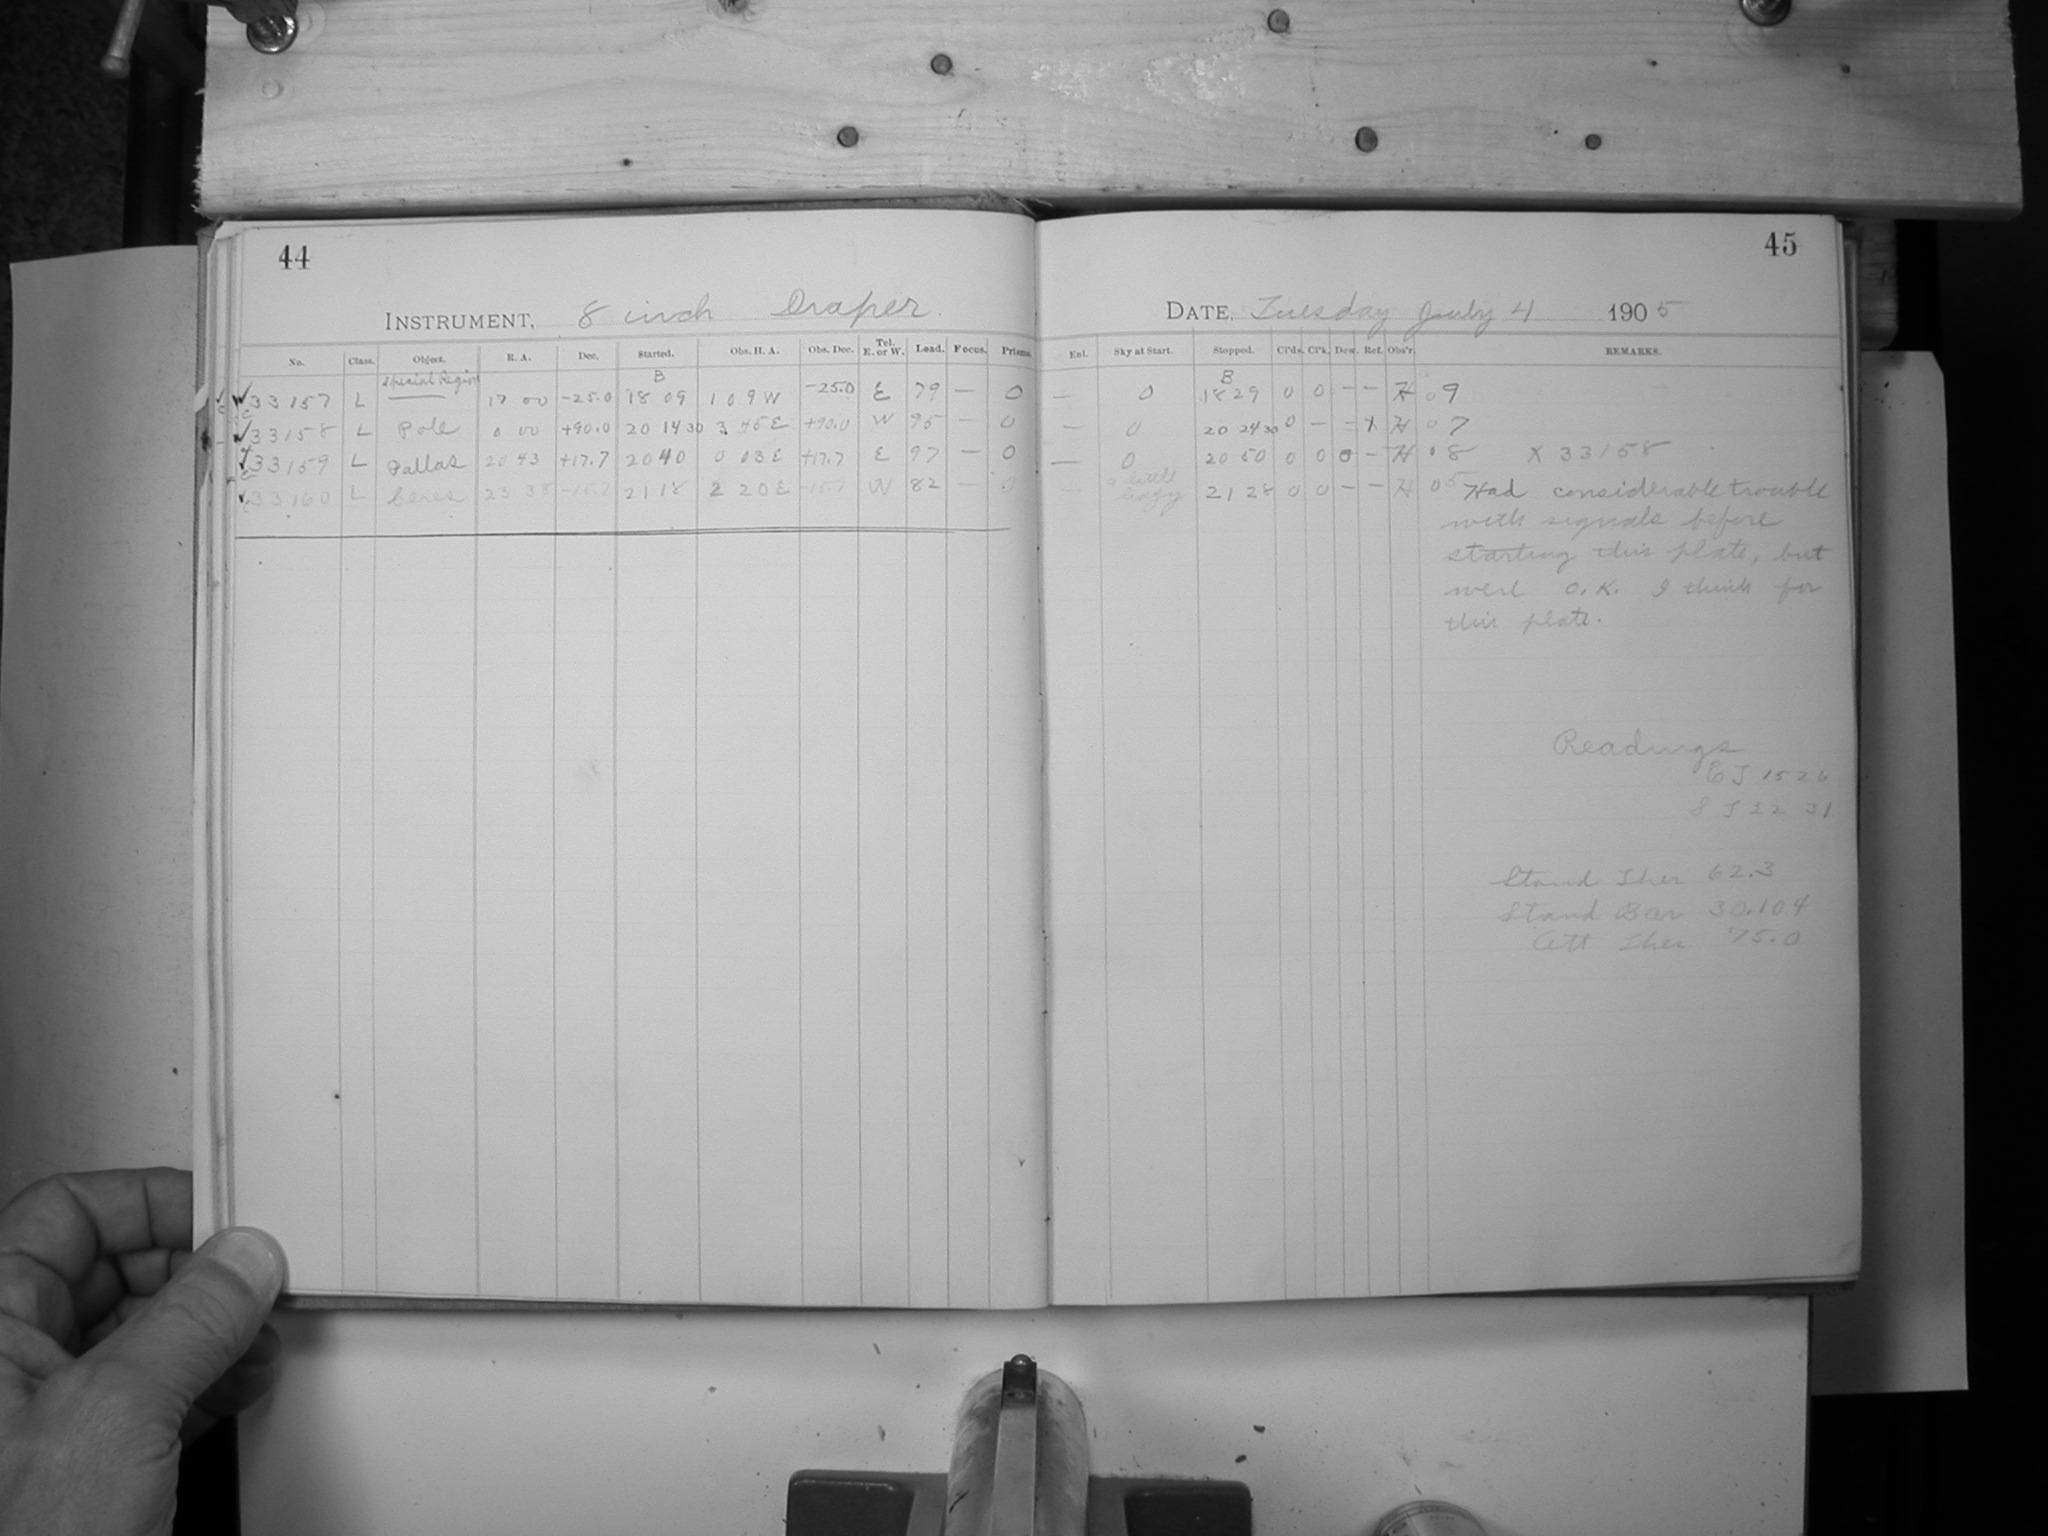 44
INSTRUMENT, 8 inch Draper.
No. Class. Object. R. A. Dec. Started. Obs. H. A. Obs. Dec. Tel. E. or W. Lead. Focus. Prisms.
33157 L Special Region 17 00 -25.0 B 18 09 1 09 W -25.0 E 79 — 0
33158 L Pole 0 00 +90.0 20 14 30 3 45 E +90.0 W 95 — 0
33159 L Pallas 20 43 +17.7 20 40 0 03 E +17.7 E 97 — 0
33160 L Ceres 23 38 -15.7 21 18 2 20 E -15.7 W 82 — 0
45
DATE, Tuesday July 4 1905
Enl. Sky at Start. Stopped. Cl'ds. Cl'k. Dew. Ref. Obs'r. REMARKS.
— 0 B 18 29 0 0 — — H 09
— 0 20 24 30 0 — — X H 07
— 0 20 50 0 0 0 — H 08 X 33158
— a little hazy 21 28 0 0 — — H 05 Had considerable trouble
with signals before
starting this plate, but
were O.K. I think for
this plate.
Readings
E J 15 26
S J 22 31
Stand Ther 62.3
Stand Bar 30.104
Att Ther 75.0